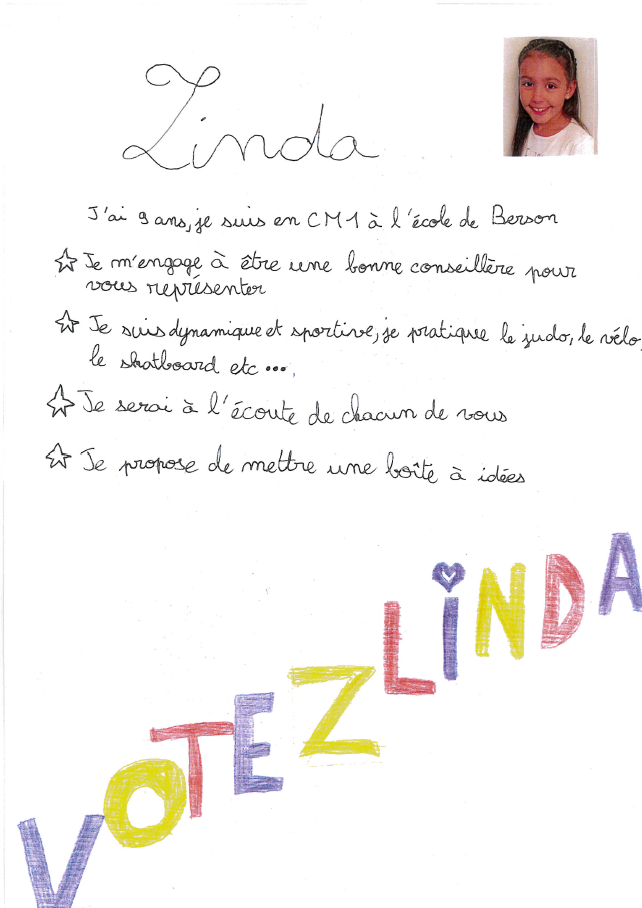 Linda
J'ai 9 ans, je suis en CM1 à l'école de Berson
Je m'engage à être une bonne conseillère pour
vous représenter
Je suis dynamique et sportive, je pratique le judo, le vélo,
le skatboard etc...,
Je serai à l'écoute de chacun de vous
Je propose de mettre une boîte à idées
VOTEZ LINDA